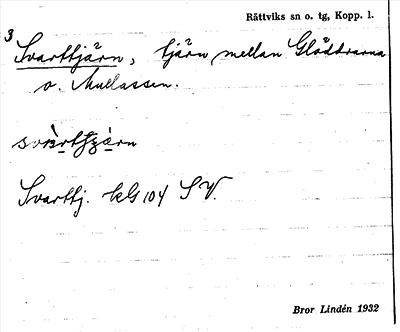 Rättviks sn o. tg, Kopp. l.
3
Svarttjärn, tjärn mellan Gläddrarna
o. Mullassen.
Svarttj. kG 104 SV.
Bror Lindén 1932